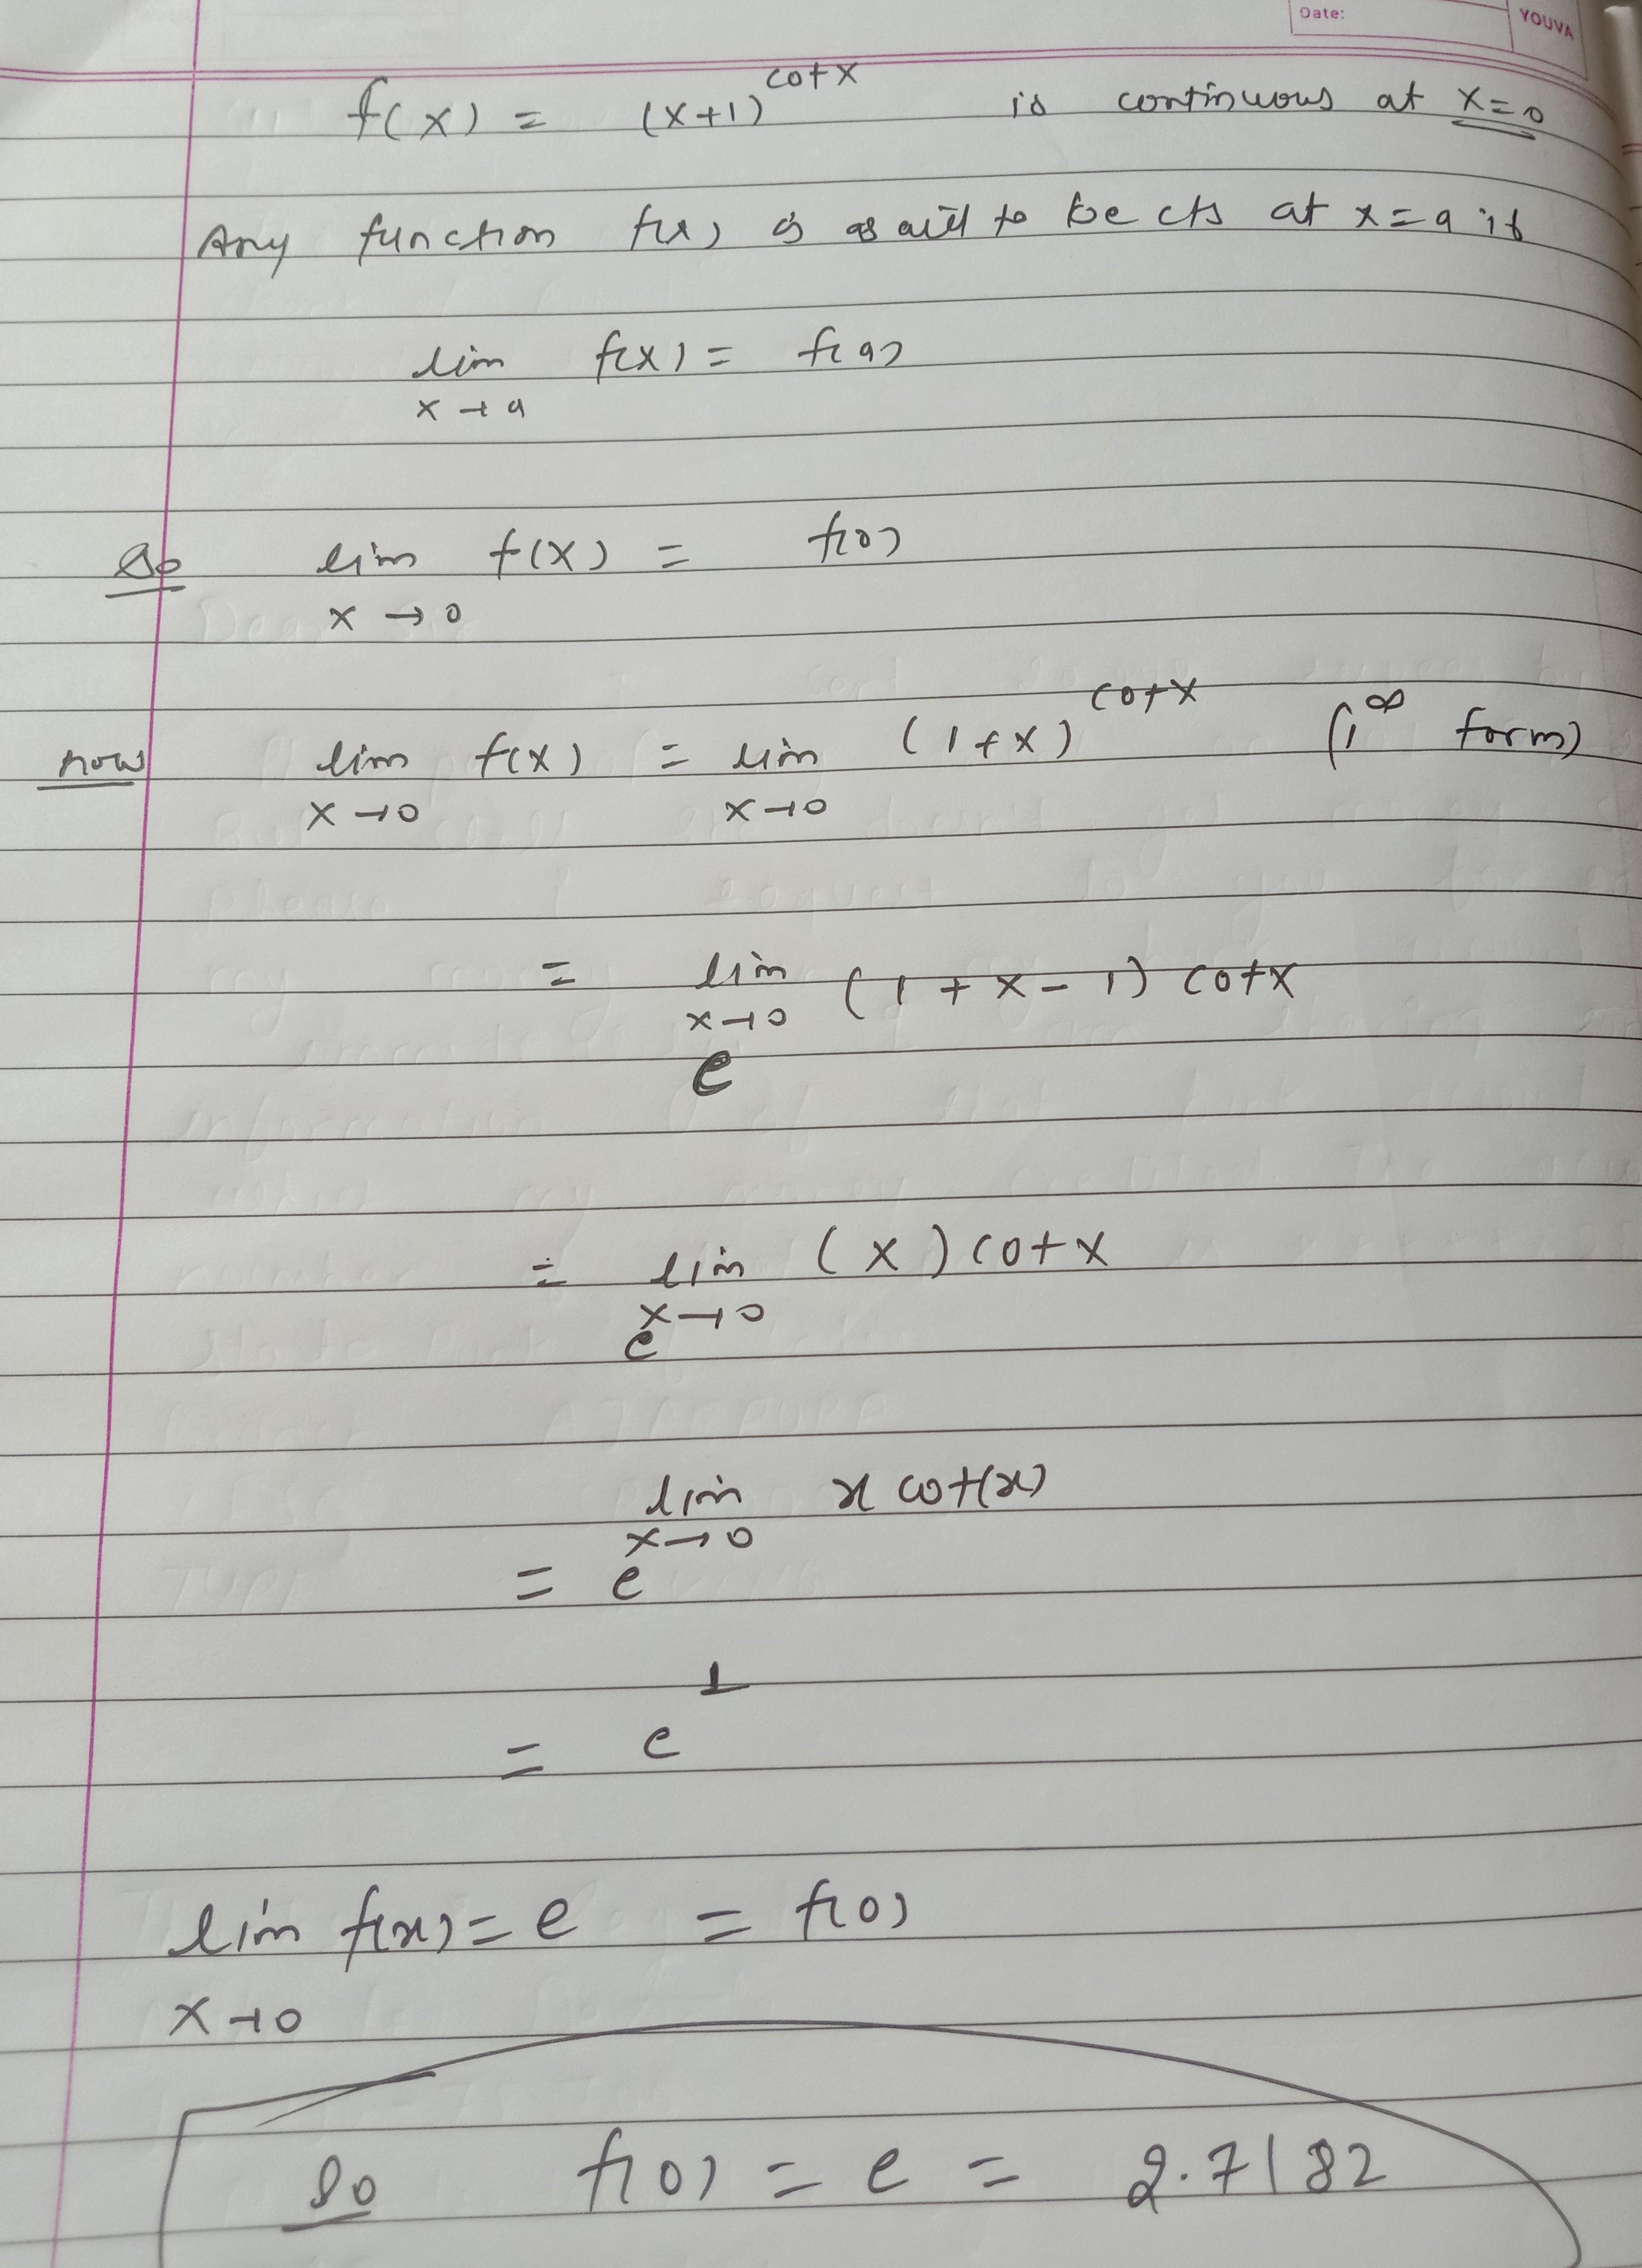 Date:
YOUVA
f(x) = (x+1)^cotx is continuous at x=0
Any function f(x) is said to be cts at x=a if
lim f(x) = f(a)
x→a
So lim f(x) = f(0)
x→0
now lim f(x) = lim (1+x)^cotx (1^∞ form)
x→0 x→0
= lim (1+x-1) cotx
x→0
e
= lim (x) cotx
x→0
e
lim x cot(x)
x→0
= e
1
= e
lim f(x) = e = f(0)
x→0
So f(0) = e = 2.7182